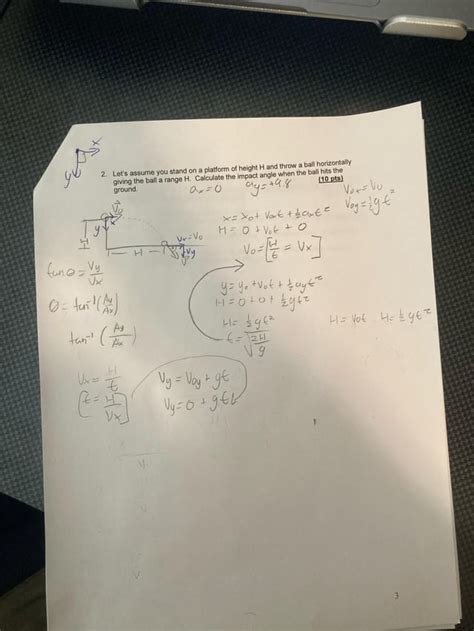 x
y
2. Let's assume you stand on a platform of height H and throw a ball horizontally
giving the ball a range H. Calculate the impact angle when the ball hits the
ground. (10 pts)
ax=0 ay=+9.8
Vox=Vo
Voy=½gt²
V0
x
y
H
H
Vx=Vo
Vy
x=x0+Voxt+½axt²
H=0+Vot+0
Vo=[H/t=Vx]
tanθ=Vy/Vx
θ=tan⁻¹(Ay/Ax)
tan⁻¹(Ay/Ax)
y=y0+Vot+½ayt²
H=0+0+½gt²
H=½gt²
t=√2H/g
H=Vot
H=½gt²
Vx=H/t
[t=H/Vx]
Vy=Voy+gt
Vy=0+gt
3